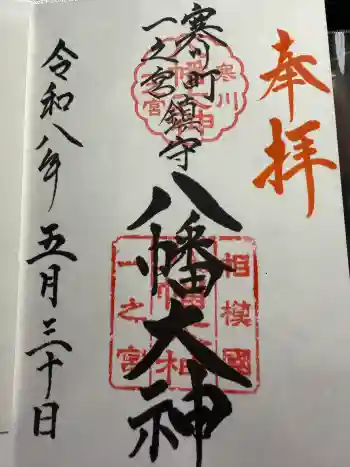 奉拝
寒川町
一之宮鎮守
八幡大神
令和八年五月三十日
相模國
一之宮
寒川
一之宮